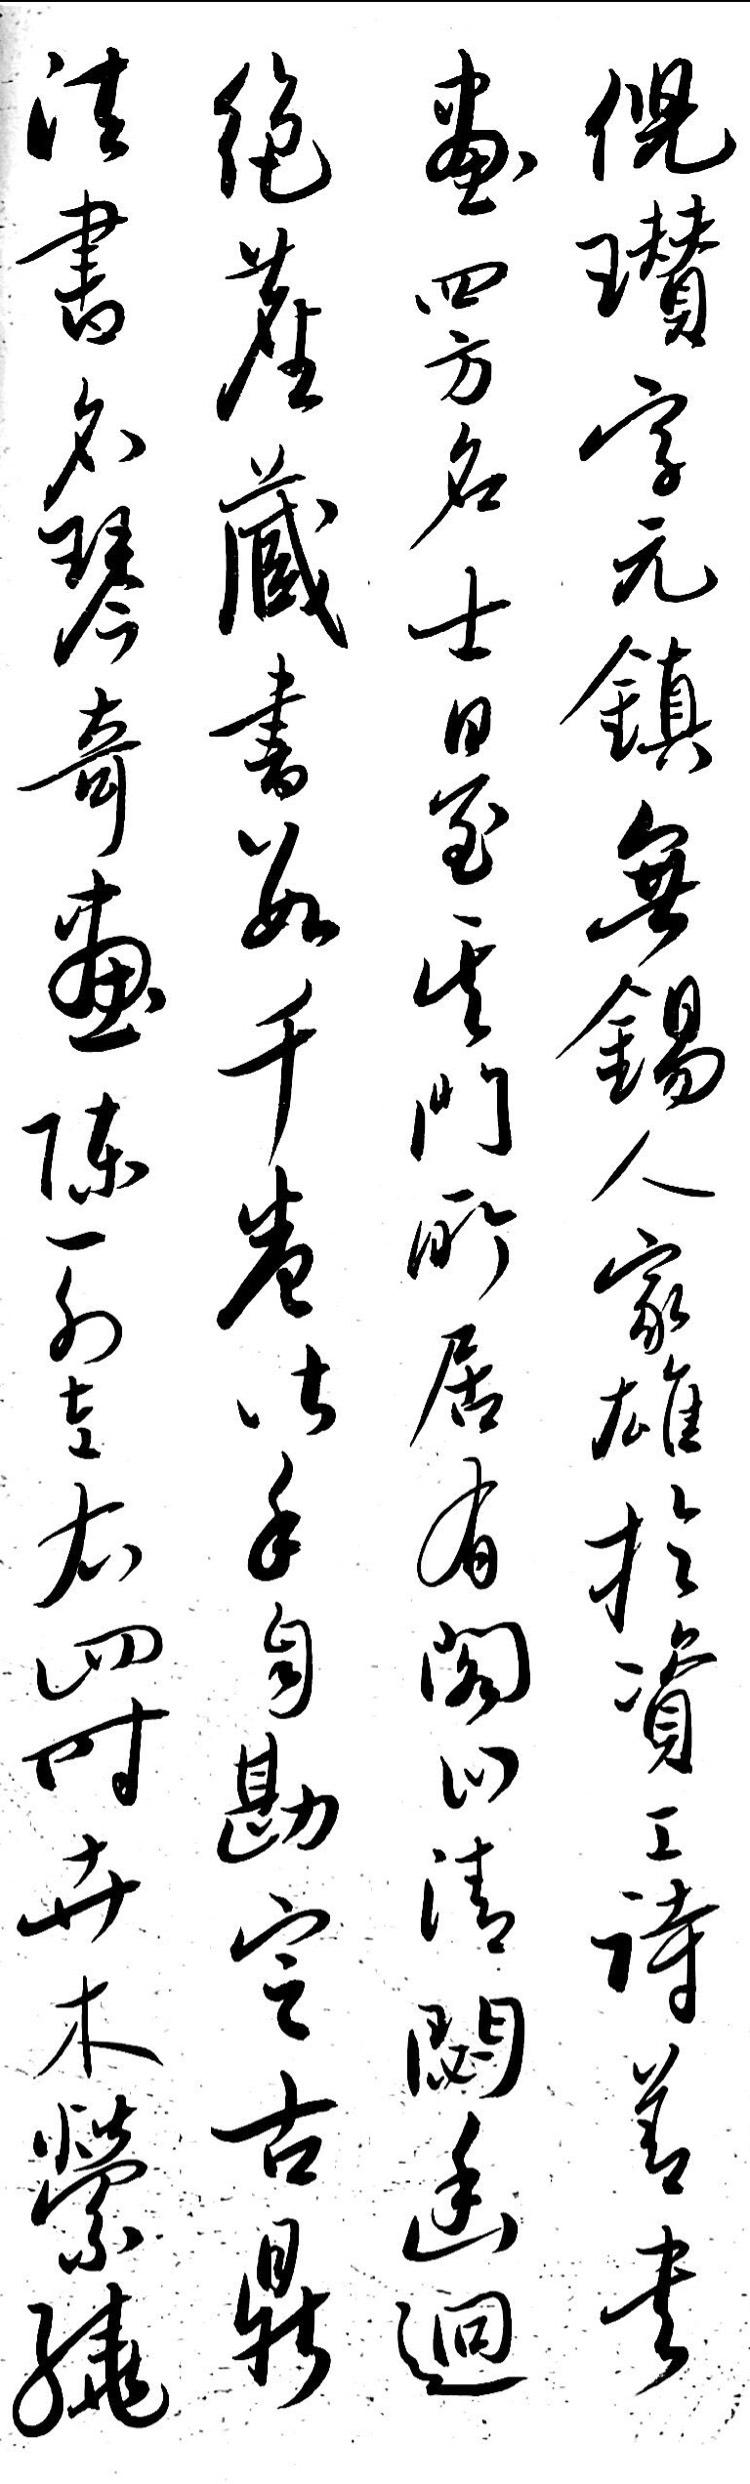 倪瓚字元鎮無錫人家雄於資工詩善書
畫四方名士日至其門所居有閣曰清閟幽迥
絕塵藏書數千卷皆手自勘定古鼎
法書名琴奇畫陳列左右四時卉木縈繞